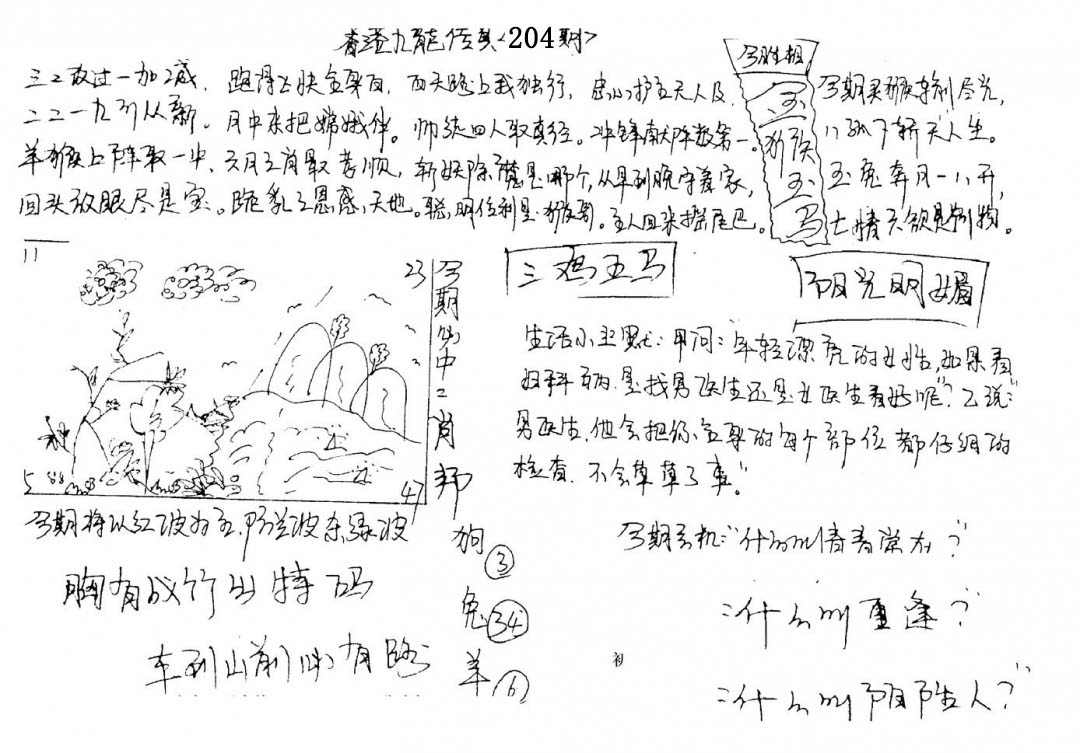 香港九龍传真<204期>
三二改过一加减，跑得飞快全身白，西天路上我独行，忠心护主无人及，
二二一九引从新。月中来把嫦娥伴。师徒四人取真经。冲锋献阵数第一。
羊猴上阵取一中，六月三肖最孝顺，斩妖除魔是哪个，从早到晚守着家，
回头放眼尽是宝。跪乳之恩感天地。聪明伶利是猴哥。主人回来摇尾巴。
今胜相
玉
猴
玉
马
今期买猴
玉兔奔月一八开，
七情六欲是
11
23
5
47
今期必中二肖邦
三鸡五马
阳光明媚
生活小幽默：甲问："年轻漂亮的女性，如果看
妇科病，是找男医生还是女医生看好呢？"乙说："
男医生，他会把你全身的每个部位都仔细的
检查，不会草草了事。"
今期将以红波为主，防兰波杂绿波
胸有成竹出特码
车到山前必有路
狗③
兔㉞
羊⑥
今期玄机："什么叫青春常在？"
："什么叫重逢？"
："什么叫阴阳人？"
初